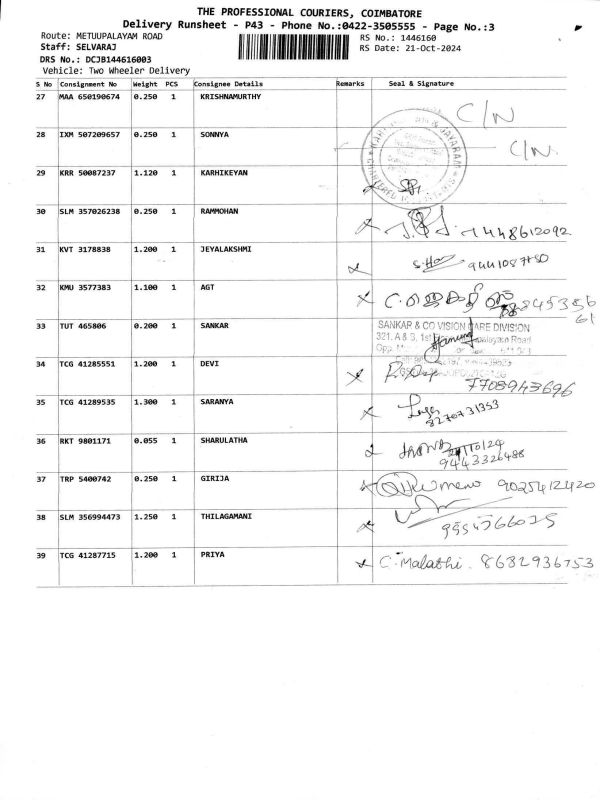 THE PROFESSIONAL COURIERS, COIMBATORE
Delivery Runsheet - P43 - Phone No.:0422-3505555 - Page No.:3
Route: METUUPALAYAM ROAD RS No.: 1446160
Staff: SELVARAJ RS Date: 21-Oct-2024
DRS No.: DCJB144616003
Vehicle: Two Wheeler Delivery
S No Consignment No Weight PCS Consignee Details Remarks Seal & Signature
27 MAA 650190674 0.250 1 KRISHNAMURTHY C/N
28 IXM 507209657 0.250 1 SONNYA C/N.
29 KRR 50087237 1.120 1 KARHIKEYAN
30 SLM 357026238 0.250 1 RAMMOHAN 7448612092
31 KVT 3178838 1.200 1 JEYALAKSHMI
32 KMU 3577383 1.100 1 AGT
33 TUT 465806 0.200 1 SANKAR SANKAR & CO VISION CARE DIVISION
321, A & B, 1st
34 TCG 41285551 1.200 1 DEVI 7708943696
35 TCG 41289535 1.300 1 SARANYA 8270731353
36 RKT 9801171 0.055 1 SHARULATHA 21/10/24
9443326488
37 TRP 5400742 0.250 1 GIRIJA 9025412420
38 SLM 356994473 1.250 1 THILAGAMANI
39 TCG 41287715 1.200 1 PRIYA C. Malathi. 8632936753